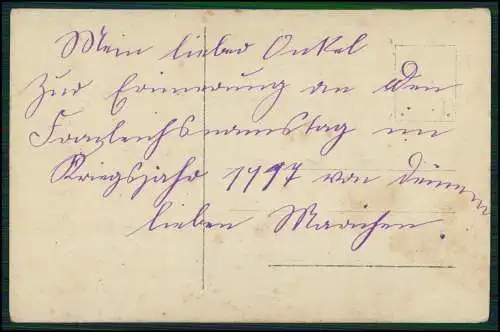 Mein lieber Onkel
Zur Erinnerung an den
Fronleichsnamstag im
Kriegsjahr 1917 von deinem
lieben Mariechen.